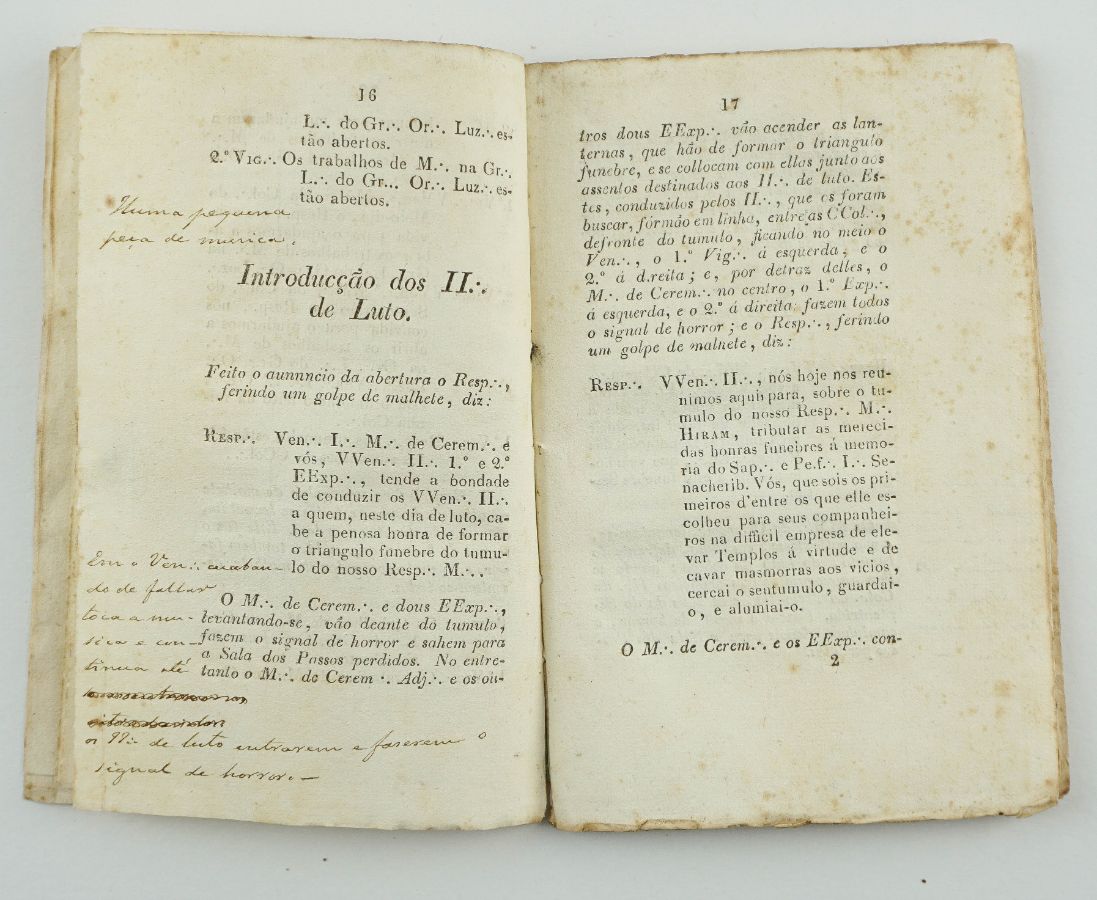 16
L.·. do Gr.·. Or.·. Luz.·. es-
tão abertos.
2.º Vig.·. Os trabalhos de M.·. na Gr.·.
L.·. do Gr... Or.·. Luz.·. es-
tão abertos.
Huma pequena
peça de musica.
Introducção dos II.·.
de Luto.
Feito o aunnncio da abertura o Resp.·.,
ferindo um golpe de malhete, diz:
Resp.·. Ven.·. I.·. M.·. de Cerem.·. e
vós, VVen.·. II.·. 1.º e 2.º
EExp.·., tende a bondade
de conduzir os VVen.·. II.·.
a quem, neste dia de luto, ca-
be a penosa honra de formar
o triangulo funebre do tumu-
lo do nosso Resp.·. M.·..
Em o Ven.·. acaban-
do de fallar
toca a mu-
sica e con-
tinua até
os II.·. de luto entrarem e faserem o
signal de horror. —
O M.·. de Cerem.·. e dous EExp.·.,
levantando-se, vão deante do tumulo,
fazem o signal de horror e sahem para
a Sala dos Passos perdidos. No entre-
tanto o M.·. de Cerem.·. Adj.·. e os ou-
17
tros dous EExp.·. vão acender as lan-
ternas, que hão de formar o triangulo
funebre, e se collocam com ellas junto aos
assentos destinados aos II.·. de luto. Es-
tes, conduzidos pelos II.·., que os foram
buscar, fórmão em linha, entre as CCol.·.,
defronte do tumulo, ficando no meio o
Ven.·., o 1.º Vig.·. á esquerda, e o
2.º á d.reita; e, por detraz delles, o
M.·. de Cerem.·. no centro, o 1.º Exp.·.
á esquerda, e o 2.º á direita: fazem todos
o signal de horror; e o Resp.·., ferindo
um golpe de malhete, diz:
Resp.·. VVen.·. II.·., nós hoje nos reu-
nimos aquii para, sobre o tu-
mulo do nosso Resp.·. M.·.
Hiram, tributar as mereci-
das honras funebres á memo-
ria do Sap.·. e Pe.f.·. I.·. Se-
nacherib. Vós, que sois os pri-
meiros d'entre os que elle es-
colheu para seus companhei-
ros na difficil empresa de ele-
var Templos á virtude e de
cavar masmorras aos vicios,
cercai o seu tumulo, guardai-
o, e alumiai-o.
O M.·. de Cerem.·. e os EExp.·. con-
2